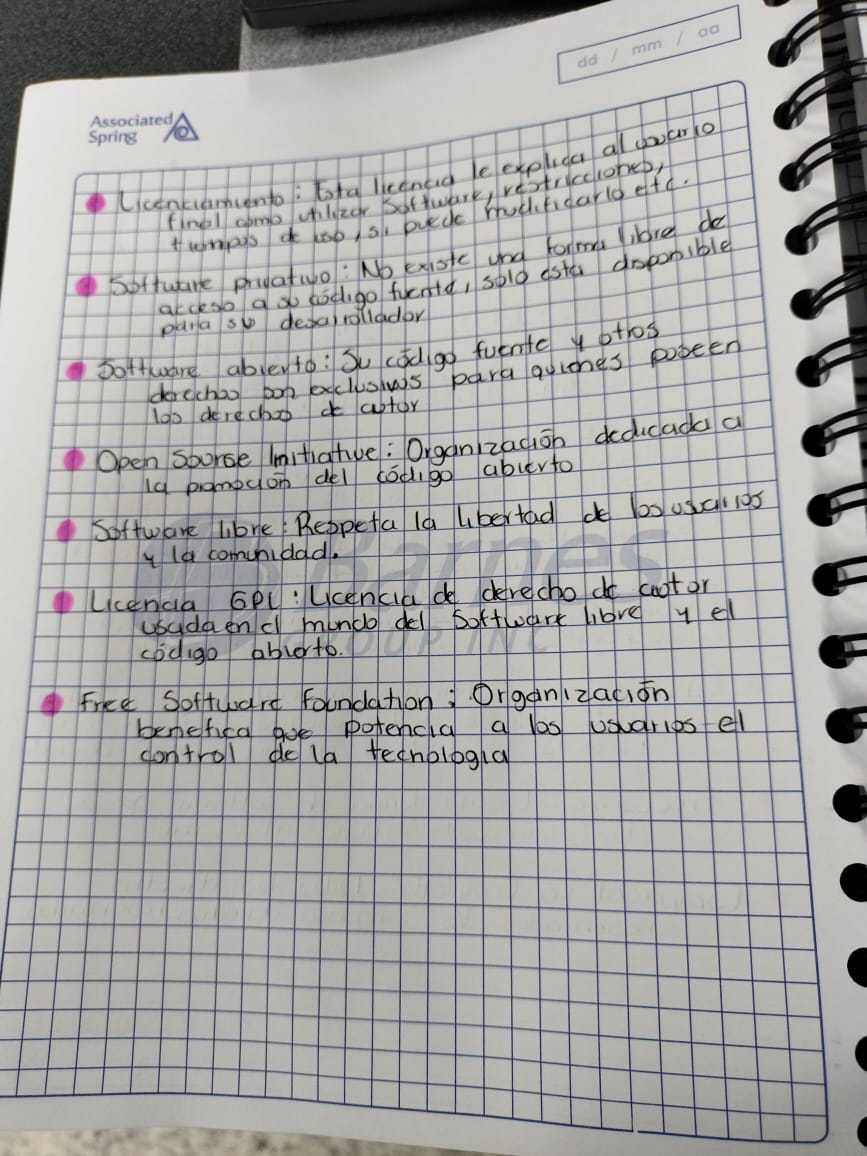 dd / mm / aa
Associated
Spring
Licenciamiento: Esta licencia le explica al usuario
final como utilizar Software, restricciones,
tiempos de uso, si puede modificarlo etc.
Software privativo: No existe una forma libre de
acceso a su código fuente, solo esta disponible
para su desarrollador
Software abierto: Su código fuente y otros
derechos son exclusivos para quienes poseen
los derechos de autor
Open Sourse Initiative: Organización dedicada a
la promoción del código abierto
Software libre: Respeta la libertad de los usuarios
y la comunidad.
Barnes
Licencia GPL: Licencia de derecho de autor
usada en el mundo del Software libre y el
GROUP INC
código abierto.
Free Software Foundation: Organización
benefica que potencia a los usuarios el
control de la tecnologia